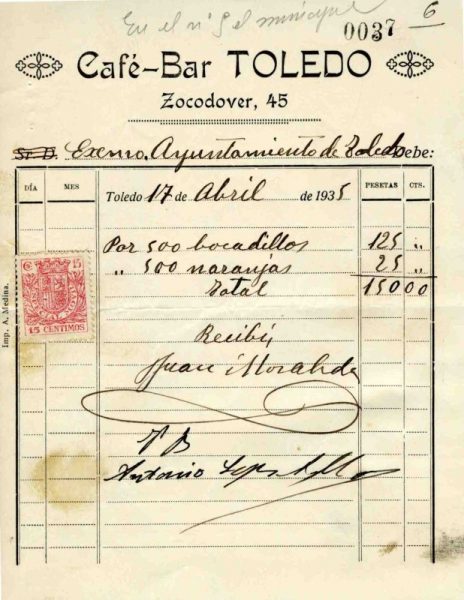 En el nº 5 el municipal
0037
6
Café-Bar TOLEDO
Zocodover, 45
Sr. D. Excmo. Ayuntamiento de Toledo Debe:
DÍA MES Toledo 17 de Abril de 1935 PESETAS CTS.
Por 500 bocadillos 125 "
" 500 naranjas 25 "
Total 150 00
C 15
15 CENTIMOS
Recibí
Juan Moraleda
Vº Bº
Antonio
Imp. A. Medina.